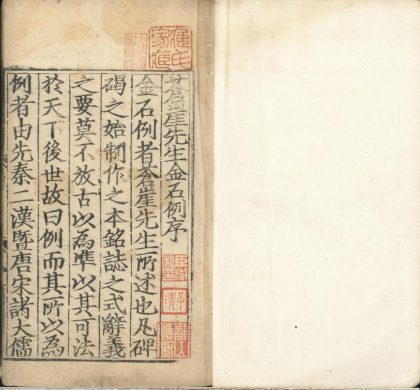 蒼崖先生金石例序
金石例者蒼崖先生所述也凡碑
碣之始制作之本銘誌之式辭義
之要莫不放古以為準以其可法
於天下後世故曰例而其所以為
例者由先秦二漢暨唐宋諸大儒